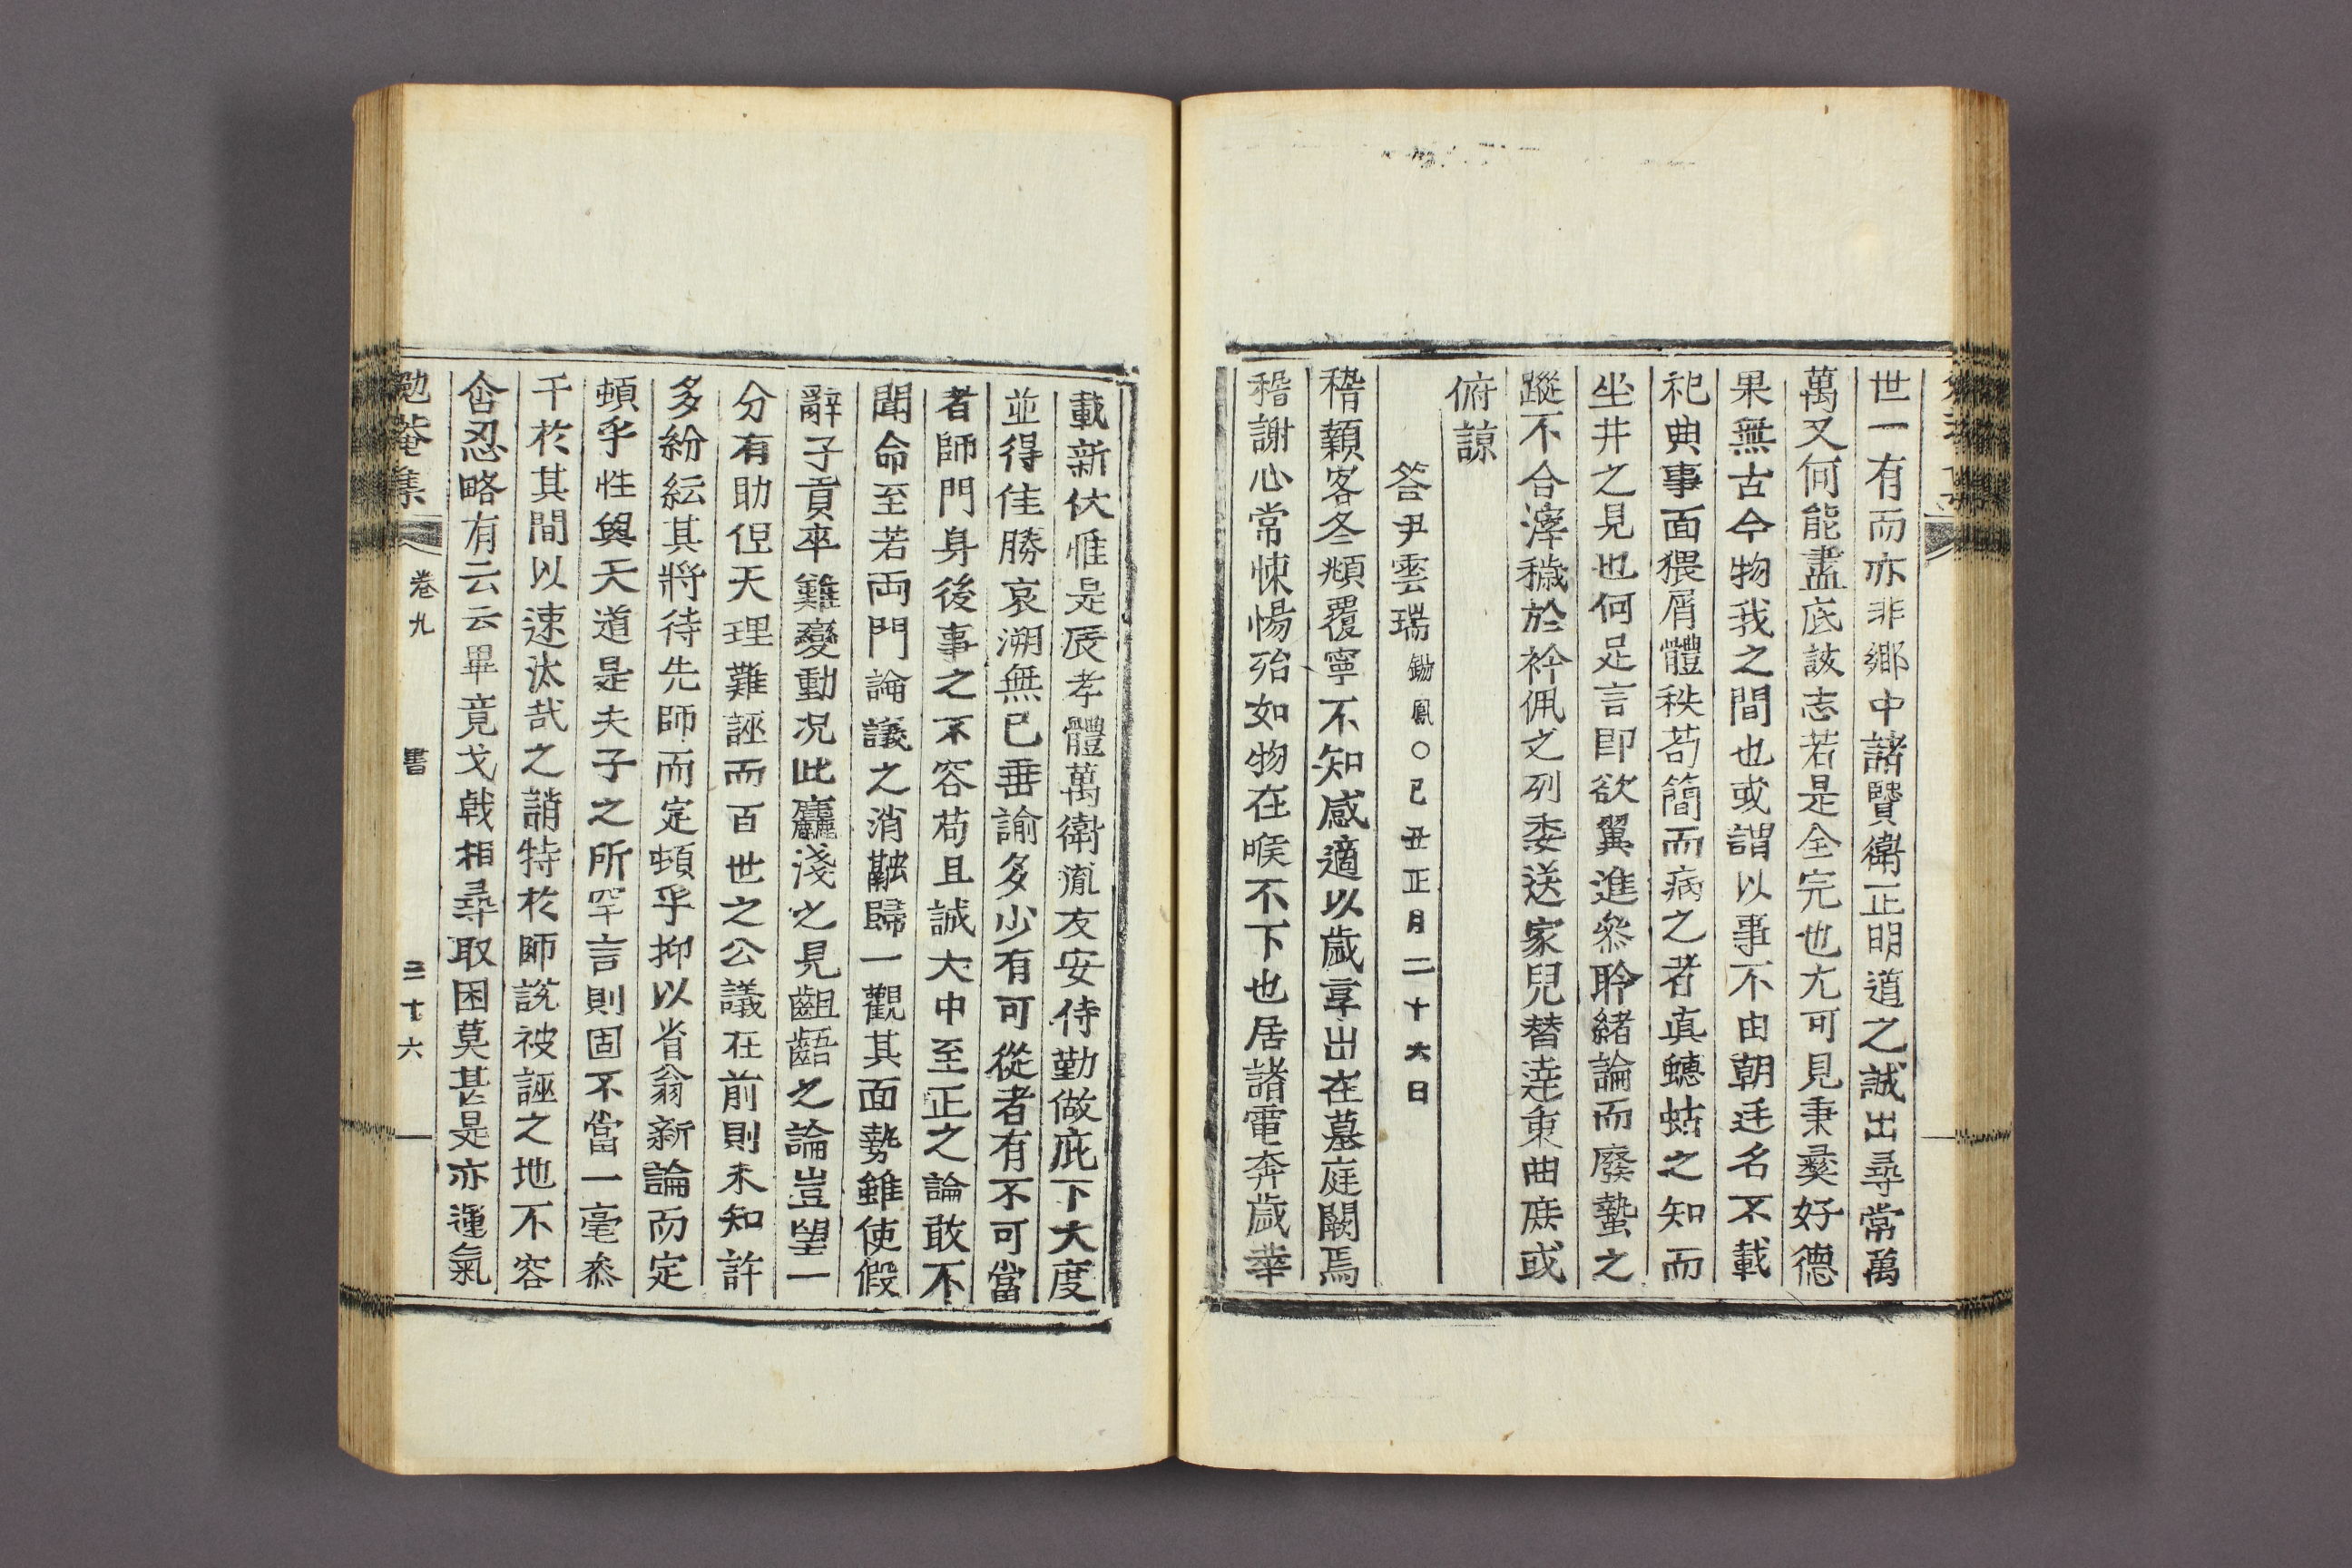 世一有而亦非鄕中諸賢衛正明道之誠出尋常萬
萬又何能盡底該志若是全完也尢可見秉彛好德
果無古今物我之間也或謂以事不由朝廷名不載
祀典事面猥屑體秩苟簡而病之者眞蟪蛄之知而
坐井之見也何足言卽欲翼進叅聆緖論而廢蟄之
蹤不合滓穢於衿佩之列委送家兒替達衷曲庶或
俯諒
答尹雲瑞 鋤鳳○己丑正月二十六日
稽顙客冬頫覆寧不知感適以歲享出在墓庭闕焉
稽謝心常悚惕殆如物在喉不下也居諸電奔歲華
載新伏惟是辰孝體萬衛胤友安侍勤做庇下大度
並得佳勝哀溯無已垂諭多少有可從者有不可當
者師門身後事之不容苟且誠大中至正之論敢不
聞命至若両門論議之消融歸一觀其面勢雖使假
辭子貢卒難變動况此麤淺之見齟齬之論豈望一
分有助但天理難誣而百世之公議在前則未知許
多紛紜其將待先師而定頓乎抑以省翁新論而定
頓乎性與天道是夫子之所罕言則固不當一毫叅
干於其間以速汰哉之誚特於師說被誣之地不容
含忍略有云云畢竟戈戟相尋取困莫甚是亦運氣
勉菴集 卷九 書 三十六